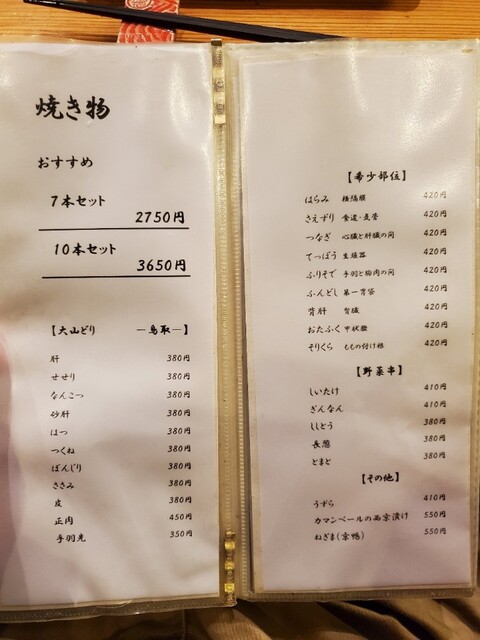 焼き物
おすすめ
7本セット
2750円
10本セット
3650円
【大山どり －鳥取－】
肝 380円
せせり 380円
なんこつ 380円
砂肝 380円
はつ 380円
つくね 380円
ぼんじり 380円
ささみ 380円
皮 380円
正肉 450円
手羽先 350円
【希少部位】
はらみ 横隔膜 420円
さえずり 食道・気管 420円
つなぎ 心臓と肝臓の間 420円
てっぽう 生殖器 420円
ふりそで 手羽と胸肉の間 420円
ふんどし 第一胃袋 420円
背肝 腎臓 420円
おたふく 甲状腺 420円
そりくら ももの付け根 420円
【野菜串】
しいたけ 410円
ぎんなん 410円
ししとう 380円
長葱 380円
とまと 380円
【その他】
うずら 410円
カマンベールの西京漬け 550円
ねぎま(京鴨) 550円